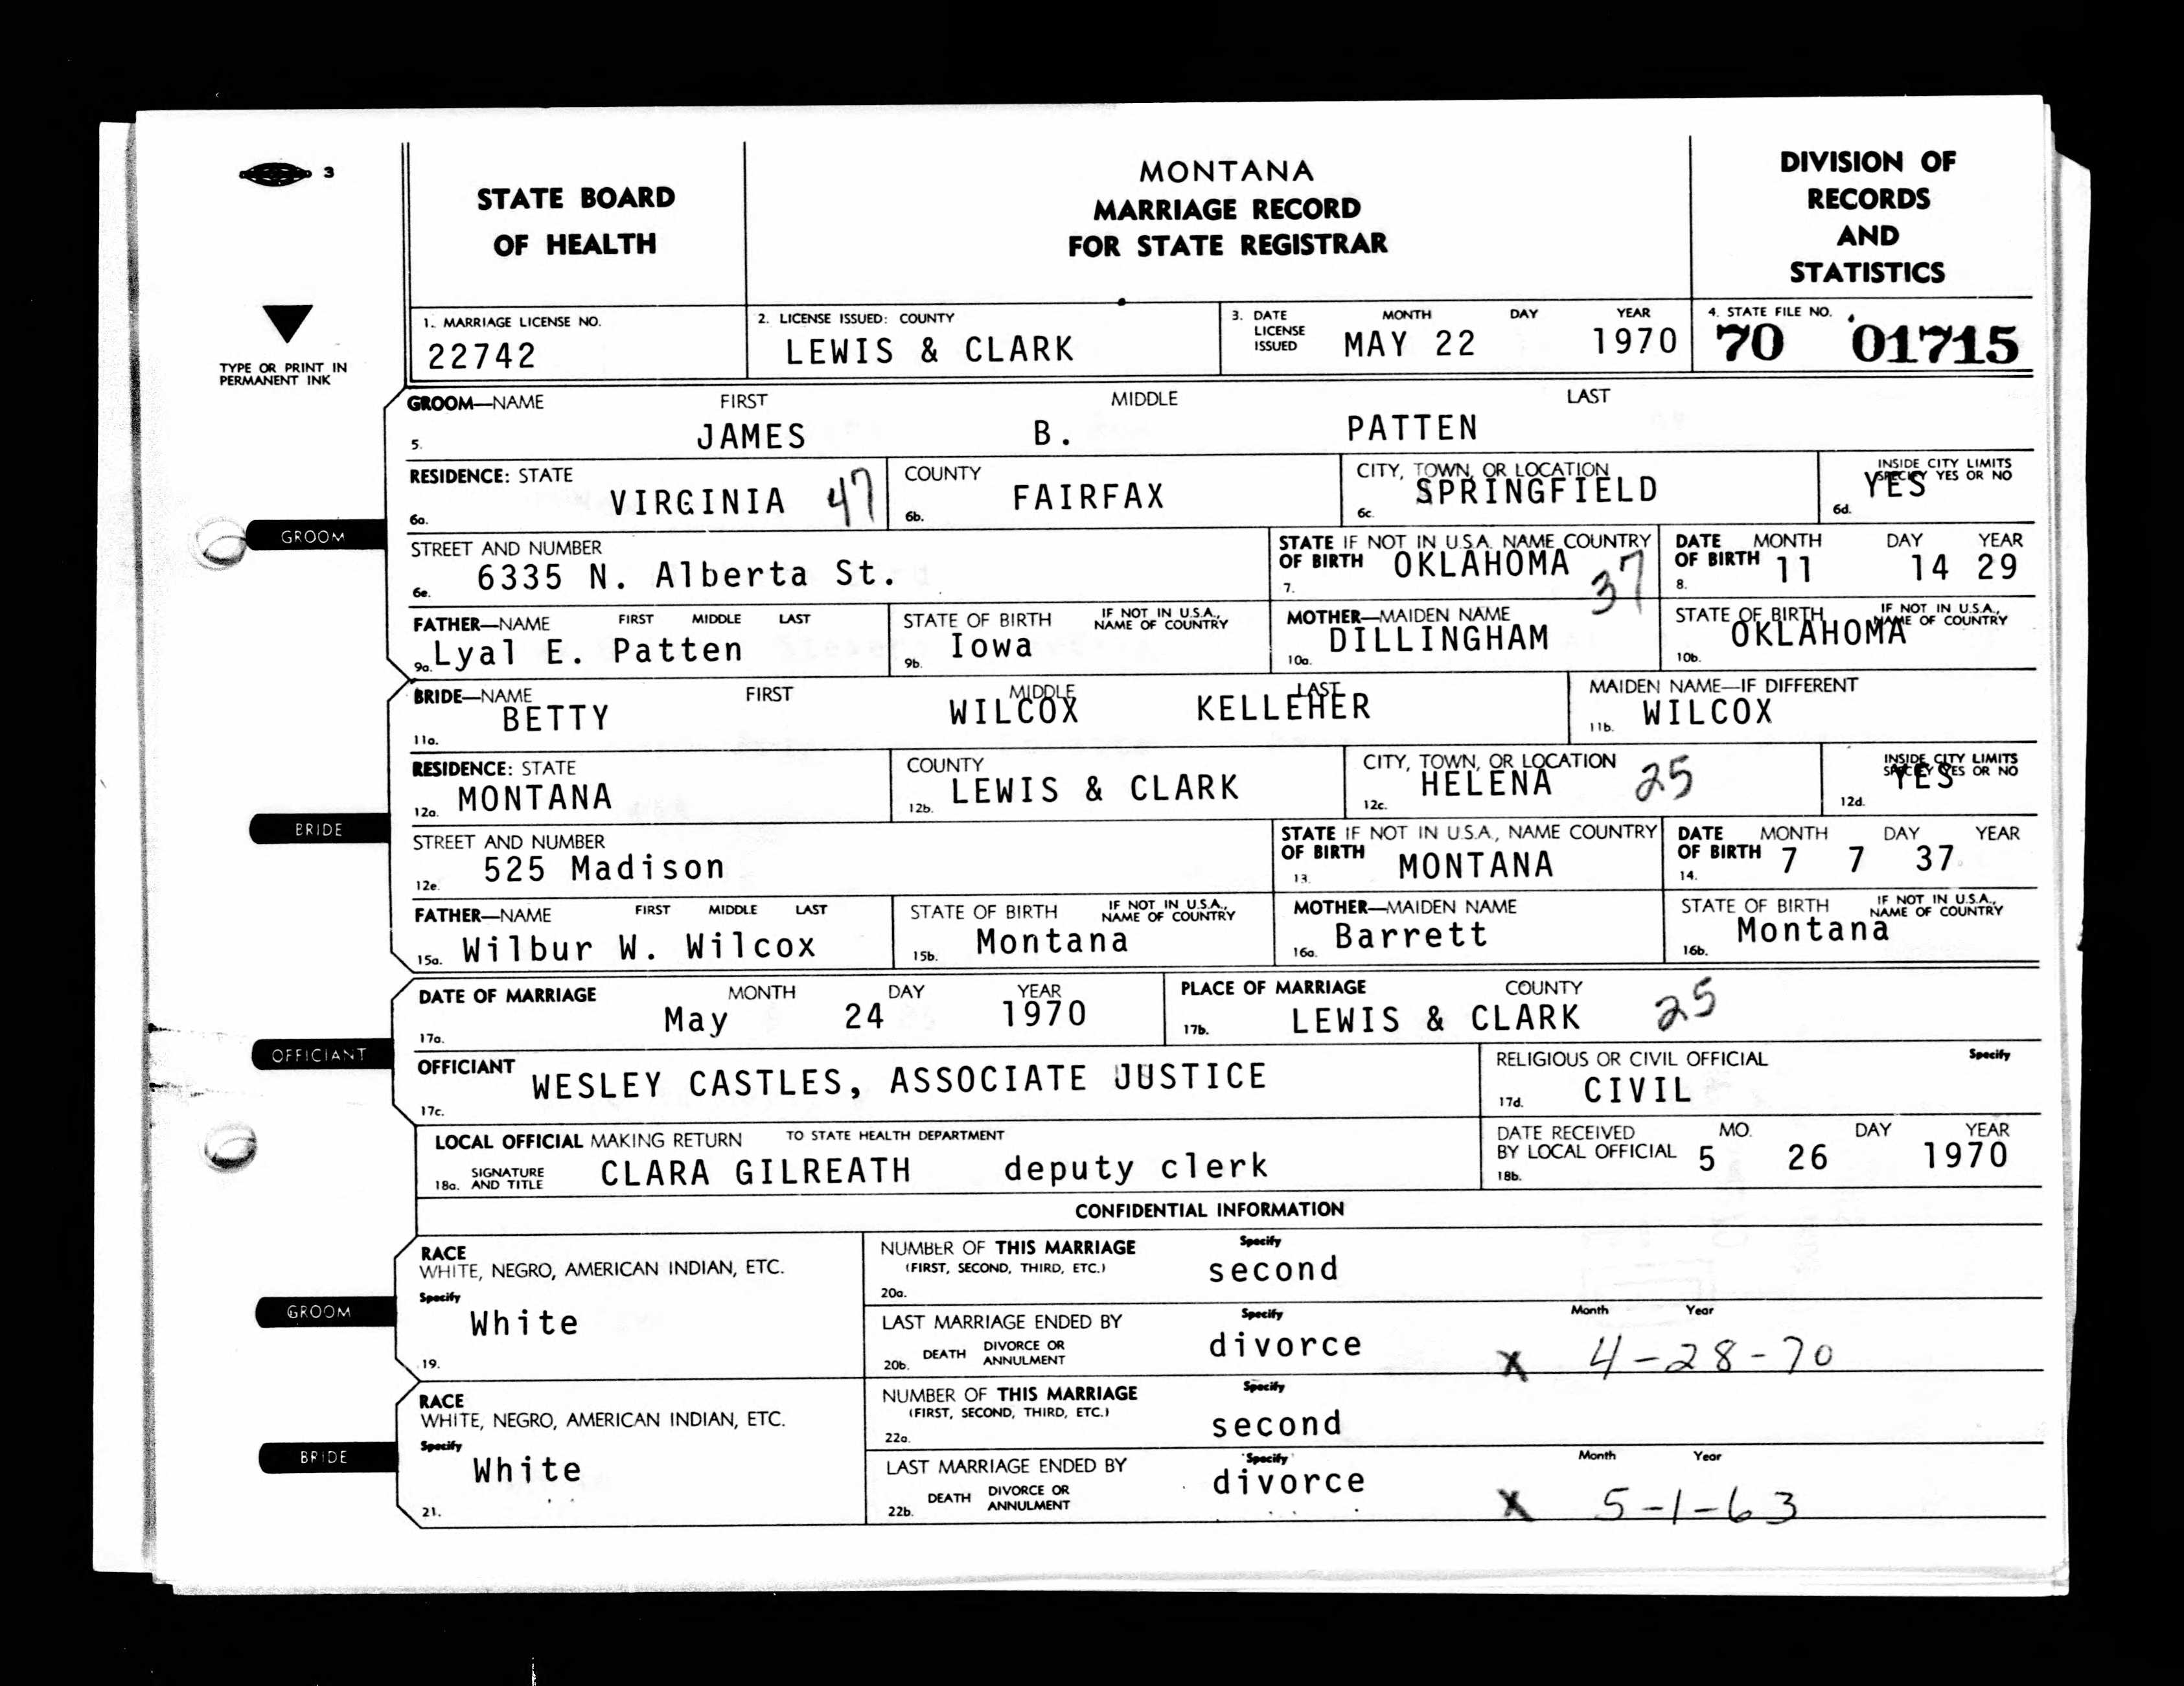 3
STATE BOARD
OF HEALTH
MONTANA
MARRIAGE RECORD
FOR STATE REGISTRAR
DIVISION OF
RECORDS
AND
STATISTICS
TYPE OR PRINT IN
PERMANENT INK
1. MARRIAGE LICENSE NO.
22742
2. LICENSE ISSUED: COUNTY
LEWIS & CLARK
3. DATE LICENSE ISSUED MONTH DAY YEAR
MAY 22 1970
4. STATE FILE NO.
70 01715
GROOM
GROOM—NAME FIRST MIDDLE LAST
5. JAMES B. PATTEN
RESIDENCE: STATE
6a. VIRGINIA 47
COUNTY
6b. FAIRFAX
CITY, TOWN, OR LOCATION
6c. SPRINGFIELD
INSIDE CITY LIMITS
SPECIFY YES OR NO
6d. YES
STREET AND NUMBER
6e. 6335 N. Alberta St.
STATE IF NOT IN U.S.A. NAME COUNTRY
OF BIRTH OKLAHOMA 37
7.
DATE MONTH DAY YEAR
OF BIRTH 11 14 29
8.
FATHER—NAME FIRST MIDDLE LAST
9a. Lyal E. Patten
STATE OF BIRTH IF NOT IN U.S.A., NAME OF COUNTRY
9b. Iowa
MOTHER—MAIDEN NAME
10a. DILLINGHAM
STATE OF BIRTH IF NOT IN U.S.A., NAME OF COUNTRY
10b. OKLAHOMA
BRIDE
BRIDE—NAME FIRST MIDDLE LAST
11a. BETTY WILCOX KELLEHER
MAIDEN NAME—IF DIFFERENT
11b. WILCOX
RESIDENCE: STATE
12a. MONTANA
COUNTY
12b. LEWIS & CLARK
CITY, TOWN, OR LOCATION
12c. HELENA 25
INSIDE CITY LIMITS
SPECIFY YES OR NO
12d. YES
STREET AND NUMBER
12e. 525 Madison
STATE IF NOT IN U.S.A., NAME COUNTRY
OF BIRTH MONTANA
13.
DATE MONTH DAY YEAR
OF BIRTH 7 7 37
14.
FATHER—NAME FIRST MIDDLE LAST
15a. Wilbur W. Wilcox
STATE OF BIRTH IF NOT IN U.S.A., NAME OF COUNTRY
15b. Montana
MOTHER—MAIDEN NAME
16a. Barrett
STATE OF BIRTH IF NOT IN U.S.A., NAME OF COUNTRY
16b. Montana
OFFICIANT
DATE OF MARRIAGE MONTH DAY YEAR
17a. May 24 1970
PLACE OF MARRIAGE COUNTY
17b. LEWIS & CLARK 25
OFFICIANT
17c. WESLEY CASTLES, ASSOCIATE JUSTICE
RELIGIOUS OR CIVIL OFFICIAL Specify
17d. CIVIL
LOCAL OFFICIAL MAKING RETURN TO STATE HEALTH DEPARTMENT
18a. SIGNATURE AND TITLE CLARA GILREATH deputy clerk
DATE RECEIVED MO. DAY YEAR
BY LOCAL OFFICIAL 5 26 1970
18b.
CONFIDENTIAL INFORMATION
GROOM
RACE
WHITE, NEGRO, AMERICAN INDIAN, ETC.
Specify
White
19.
NUMBER OF THIS MARRIAGE Specify
(FIRST, SECOND, THIRD, ETC.) second
20a.
LAST MARRIAGE ENDED BY Specify Month Year
20b. DEATH DIVORCE OR ANNULMENT divorce X 4-28-70
BRIDE
RACE
WHITE, NEGRO, AMERICAN INDIAN, ETC.
Specify
White
21.
NUMBER OF THIS MARRIAGE Specify
(FIRST, SECOND, THIRD, ETC.) second
22a.
LAST MARRIAGE ENDED BY Specify Month Year
22b. DEATH DIVORCE OR ANNULMENT divorce X 5-1-63